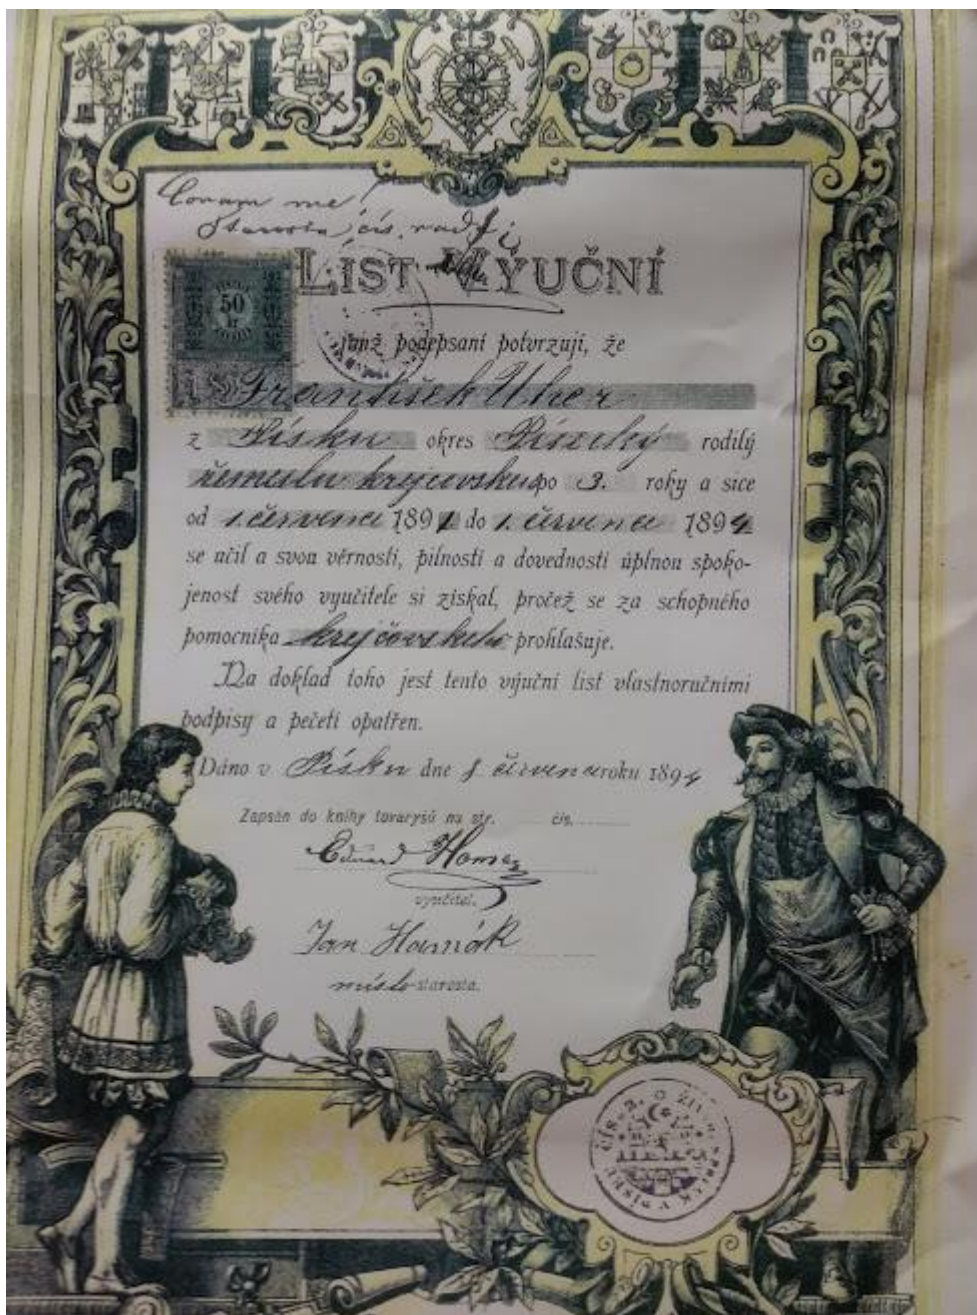 Coram me!
Starosta, cís. rad
50
kr
LIST VÝUČNÍ
jímž podepsaní potvrzují, že
František Uher
z Písku okres Písecký rodilý
řemeslu krejčovsku po 3. roky a sice
od 1. července 1891 do 1. července 1894
se učil a svou věrností, pilností a dovedností úplnou spoko-
jenost svého vyučitele si získal, pročež se za schopného
pomocníka krejčovského prohlašuje.
Na doklad toho jest tento výuční list vlastnoručními
podpisy a pečetí opatřen.
Dáno v Písku dne 1 července roku 1894
Zapsán do knihy tovaryšů na str. čís.
Eduard
vyučitel.
Jan
místo starosta.
V PÍSKU